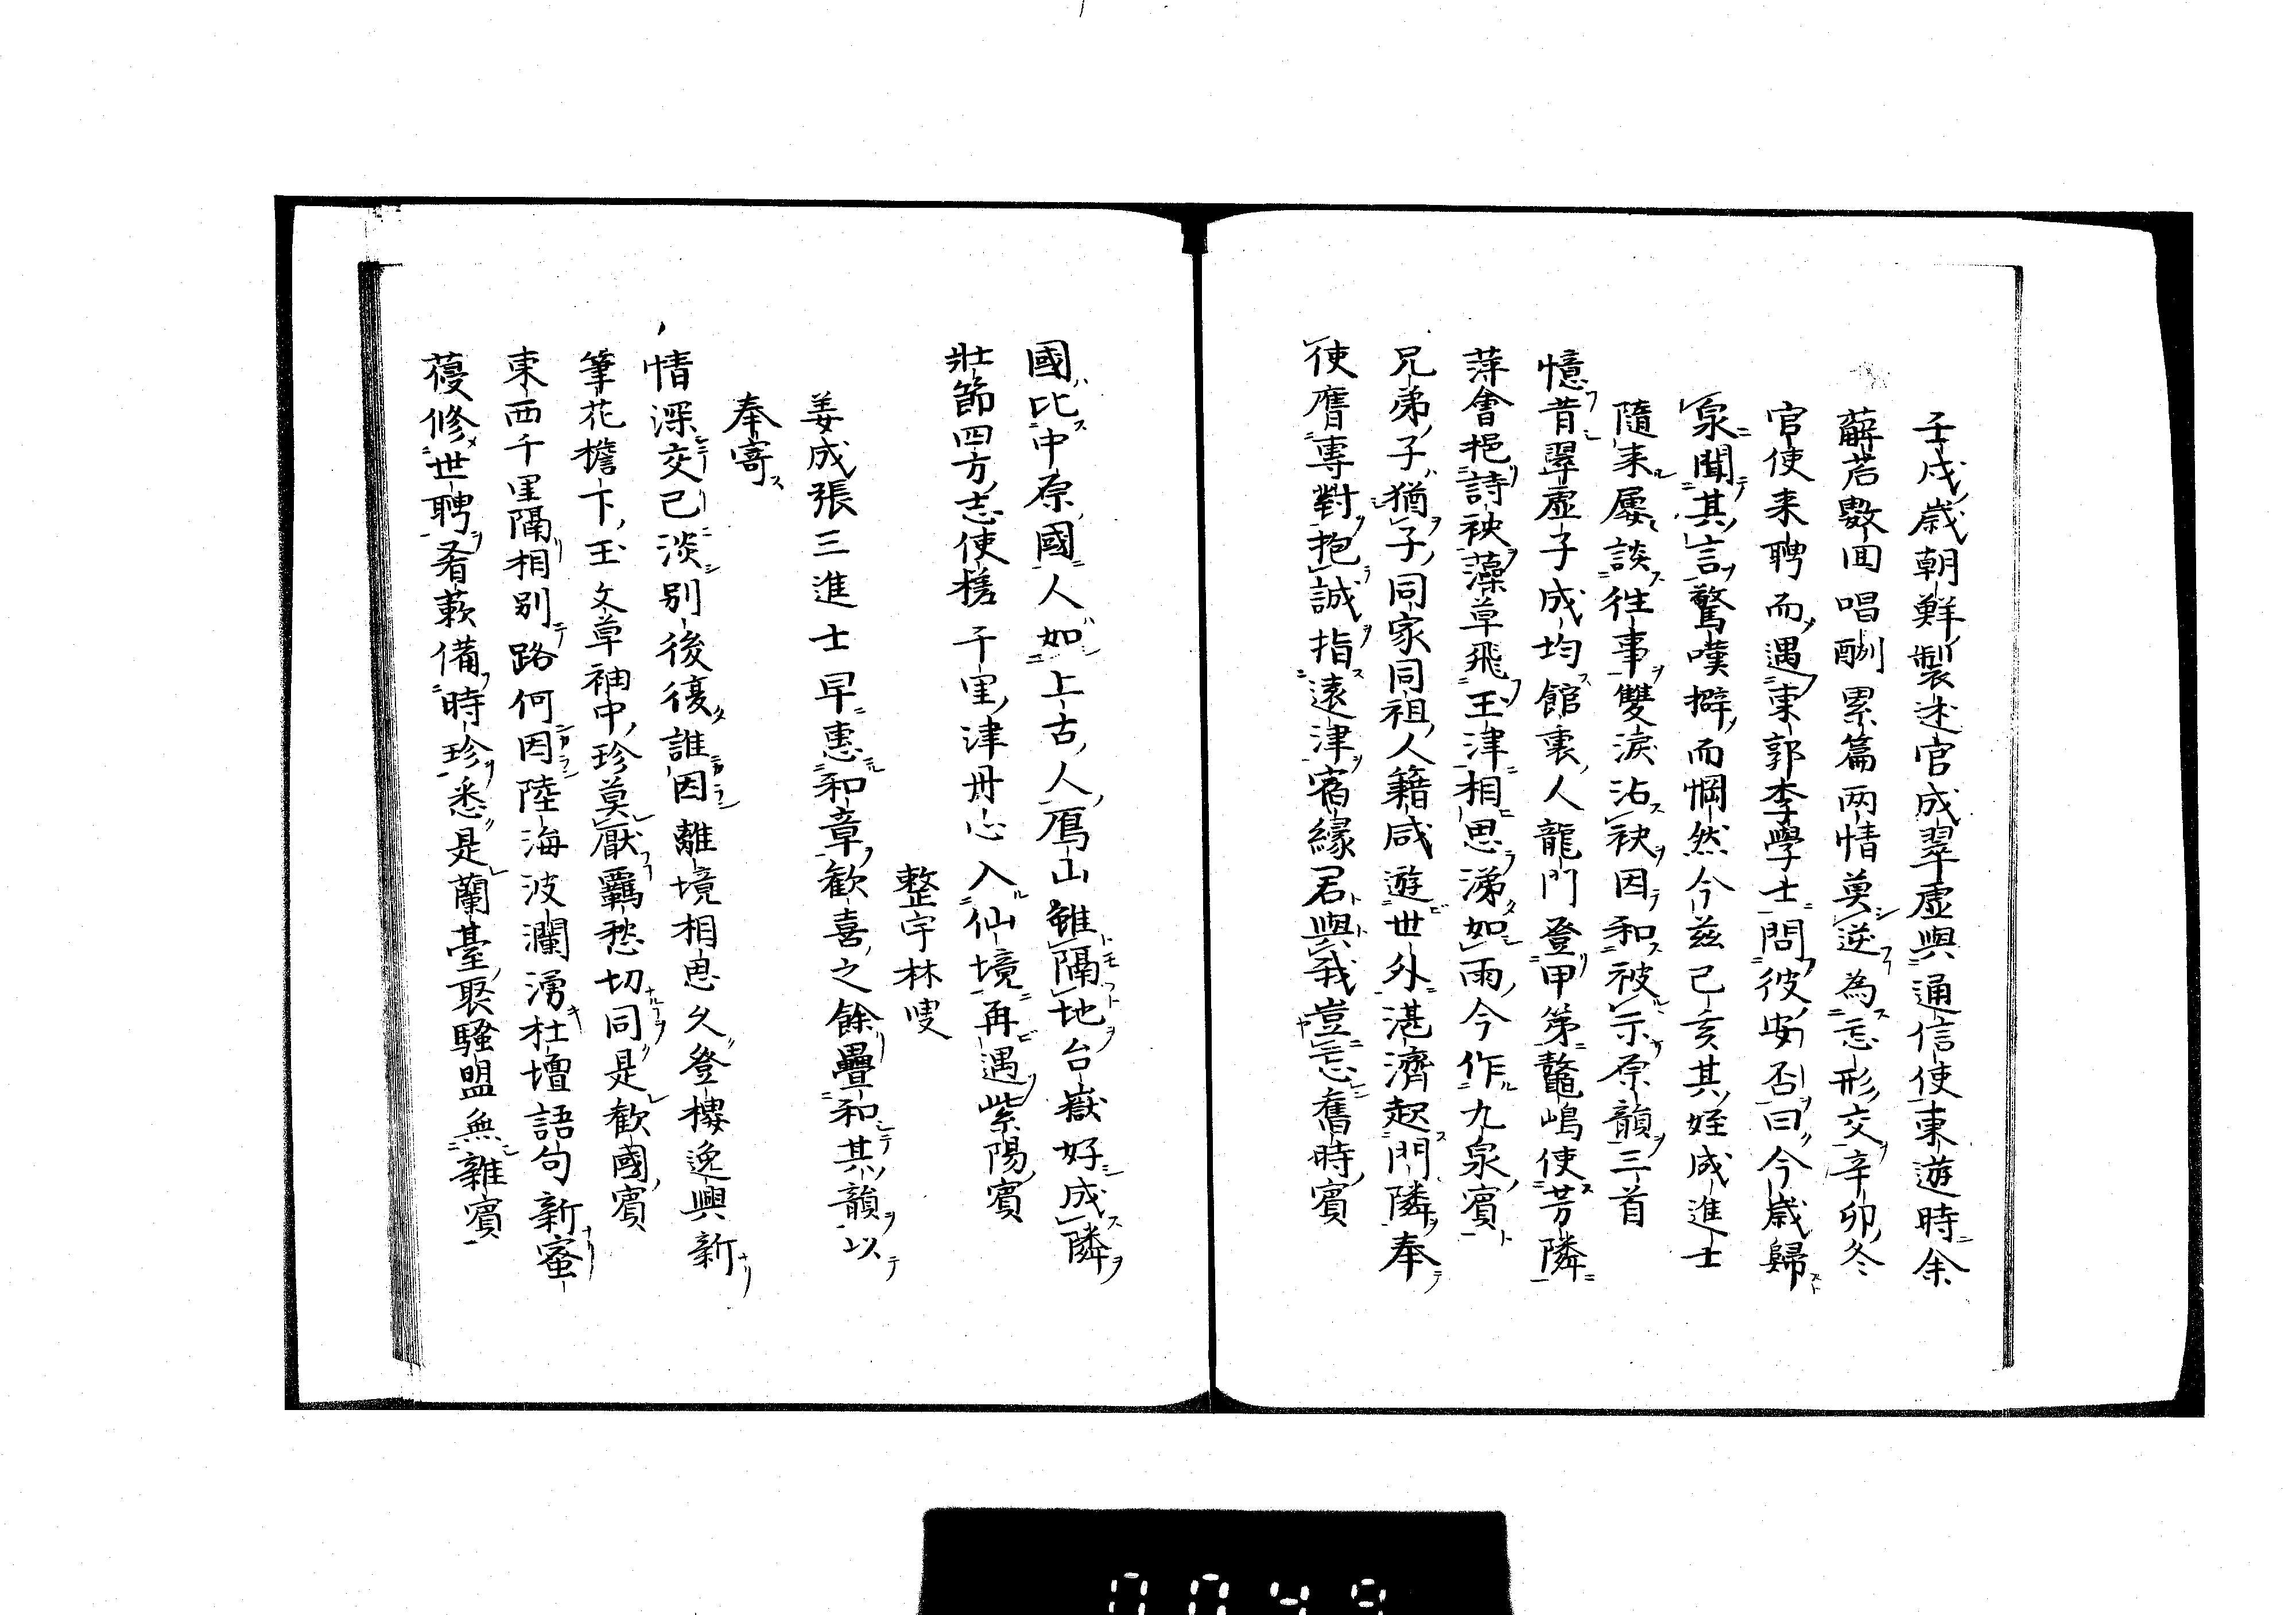 壬戌歳朝鮮製述官成翠虚與通信使東遊時余
薜若數回唱酬累篇両情莫逆為忘形交辛卯冬
官使来聘而遇東郭李學士問彼安否曰今歳歸
泉聞其言驚嘆擗而惘然今茲己亥其姪成進士
隨来屡談往事雙淚沾袂因和被示原韻三首
憶昔翠虚子成均館裏人龍門登甲第鼇嶋使芳隣
萍會挹詩袂藻草飛玉津相思涕如雨今作九泉賓
兄弟子猶子同家同祖人籍咸遊世外湛濟起門隣奉
使膺專對抱誠指遠津宿縁君與我豈忘舊時賓
國比中原國人如上古人鴈山雖隔地台嶽好成隣
壯節四方志使槎千里津丹心入仙境再遇紫陽賓
整宇林叟
姜成張三進士早惠和章歓喜之餘疊和其韻以
奉寄
情深交已淡別後復誰因離境相思久登樓逸興新
筆花檐下玉文草袖中珍莫厭羈愁切同是歓國賓
東西千里隔相別路何因陸海波瀾湧杜壇語句新蜜
蕿修世聘肴蔌備時珍悉是蘭臺聚騷盟無雜賓
0049